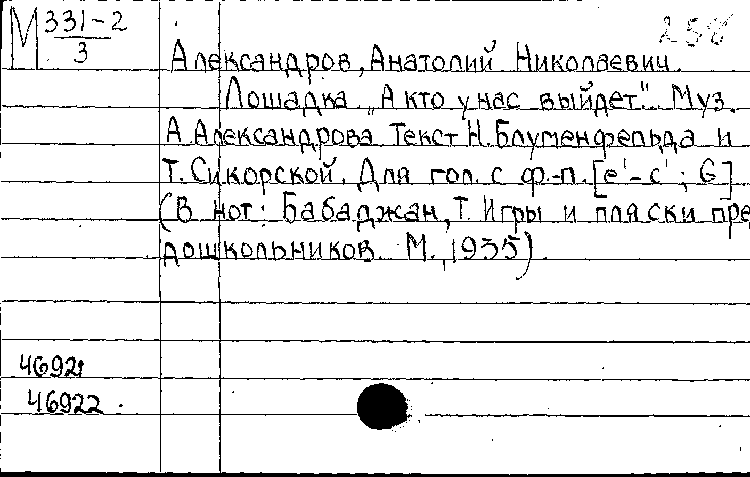 М 331-2
3
258
Александров, Анатолий Николаевич.
Лошадка „А кто у нас выйдет". Муз.
А. Александрова Текст Н. Блуменфельда и
Т. Сикорской. Для гол. с ф.-п. [e'-c'; G]
(В нот: Бабаджан, Т. Игры и пляски пре
дошкольников. М., 1935).
46921
46922